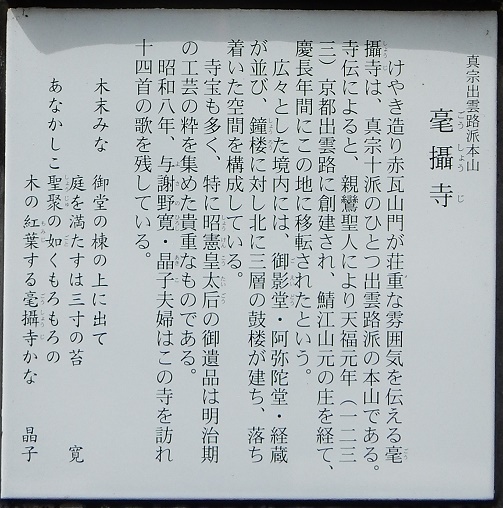 真宗出雲路派本山
毫攝寺
ごうしょうじ
けやき造り赤瓦山門が荘重な雰囲気を伝える毫
攝寺は、真宗十派のひとつ出雲路派の本山である。
寺伝によると、親鸞聖人により天福元年(一二三
三)京都出雲路に創建され、鯖江山元の庄を経て、
慶長年間にこの地に移転されたという。
広々とした境内には、御影堂・阿弥陀堂・経蔵
が並び、鐘楼に対し北に三層の鼓楼が建ち、落ち
着いた空間を構成している。
寺宝も多く、特に昭憲皇太后の御遺品は明治期
の工芸の粋を集めた貴重なものである。
昭和八年、与謝野寛・晶子夫婦はこの寺を訪れ
十四首の歌を残している。
木末みな 御堂の棟の上に出て
庭を満たすは三寸の苔 寛
あなかしこ 聖聚の如くもろもろの
木の紅葉する毫攝寺かな 晶子